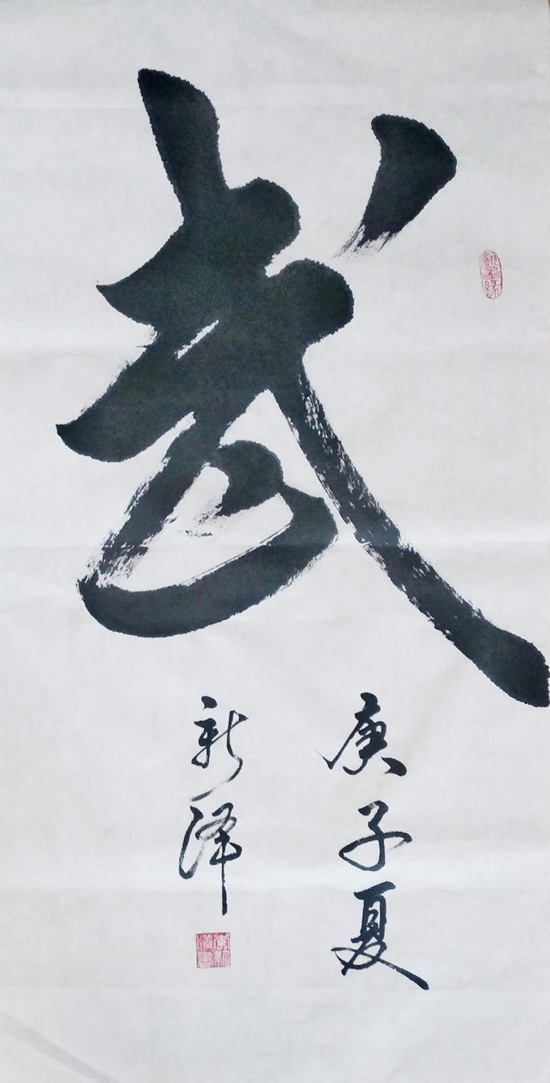 武
庚子夏
新泽